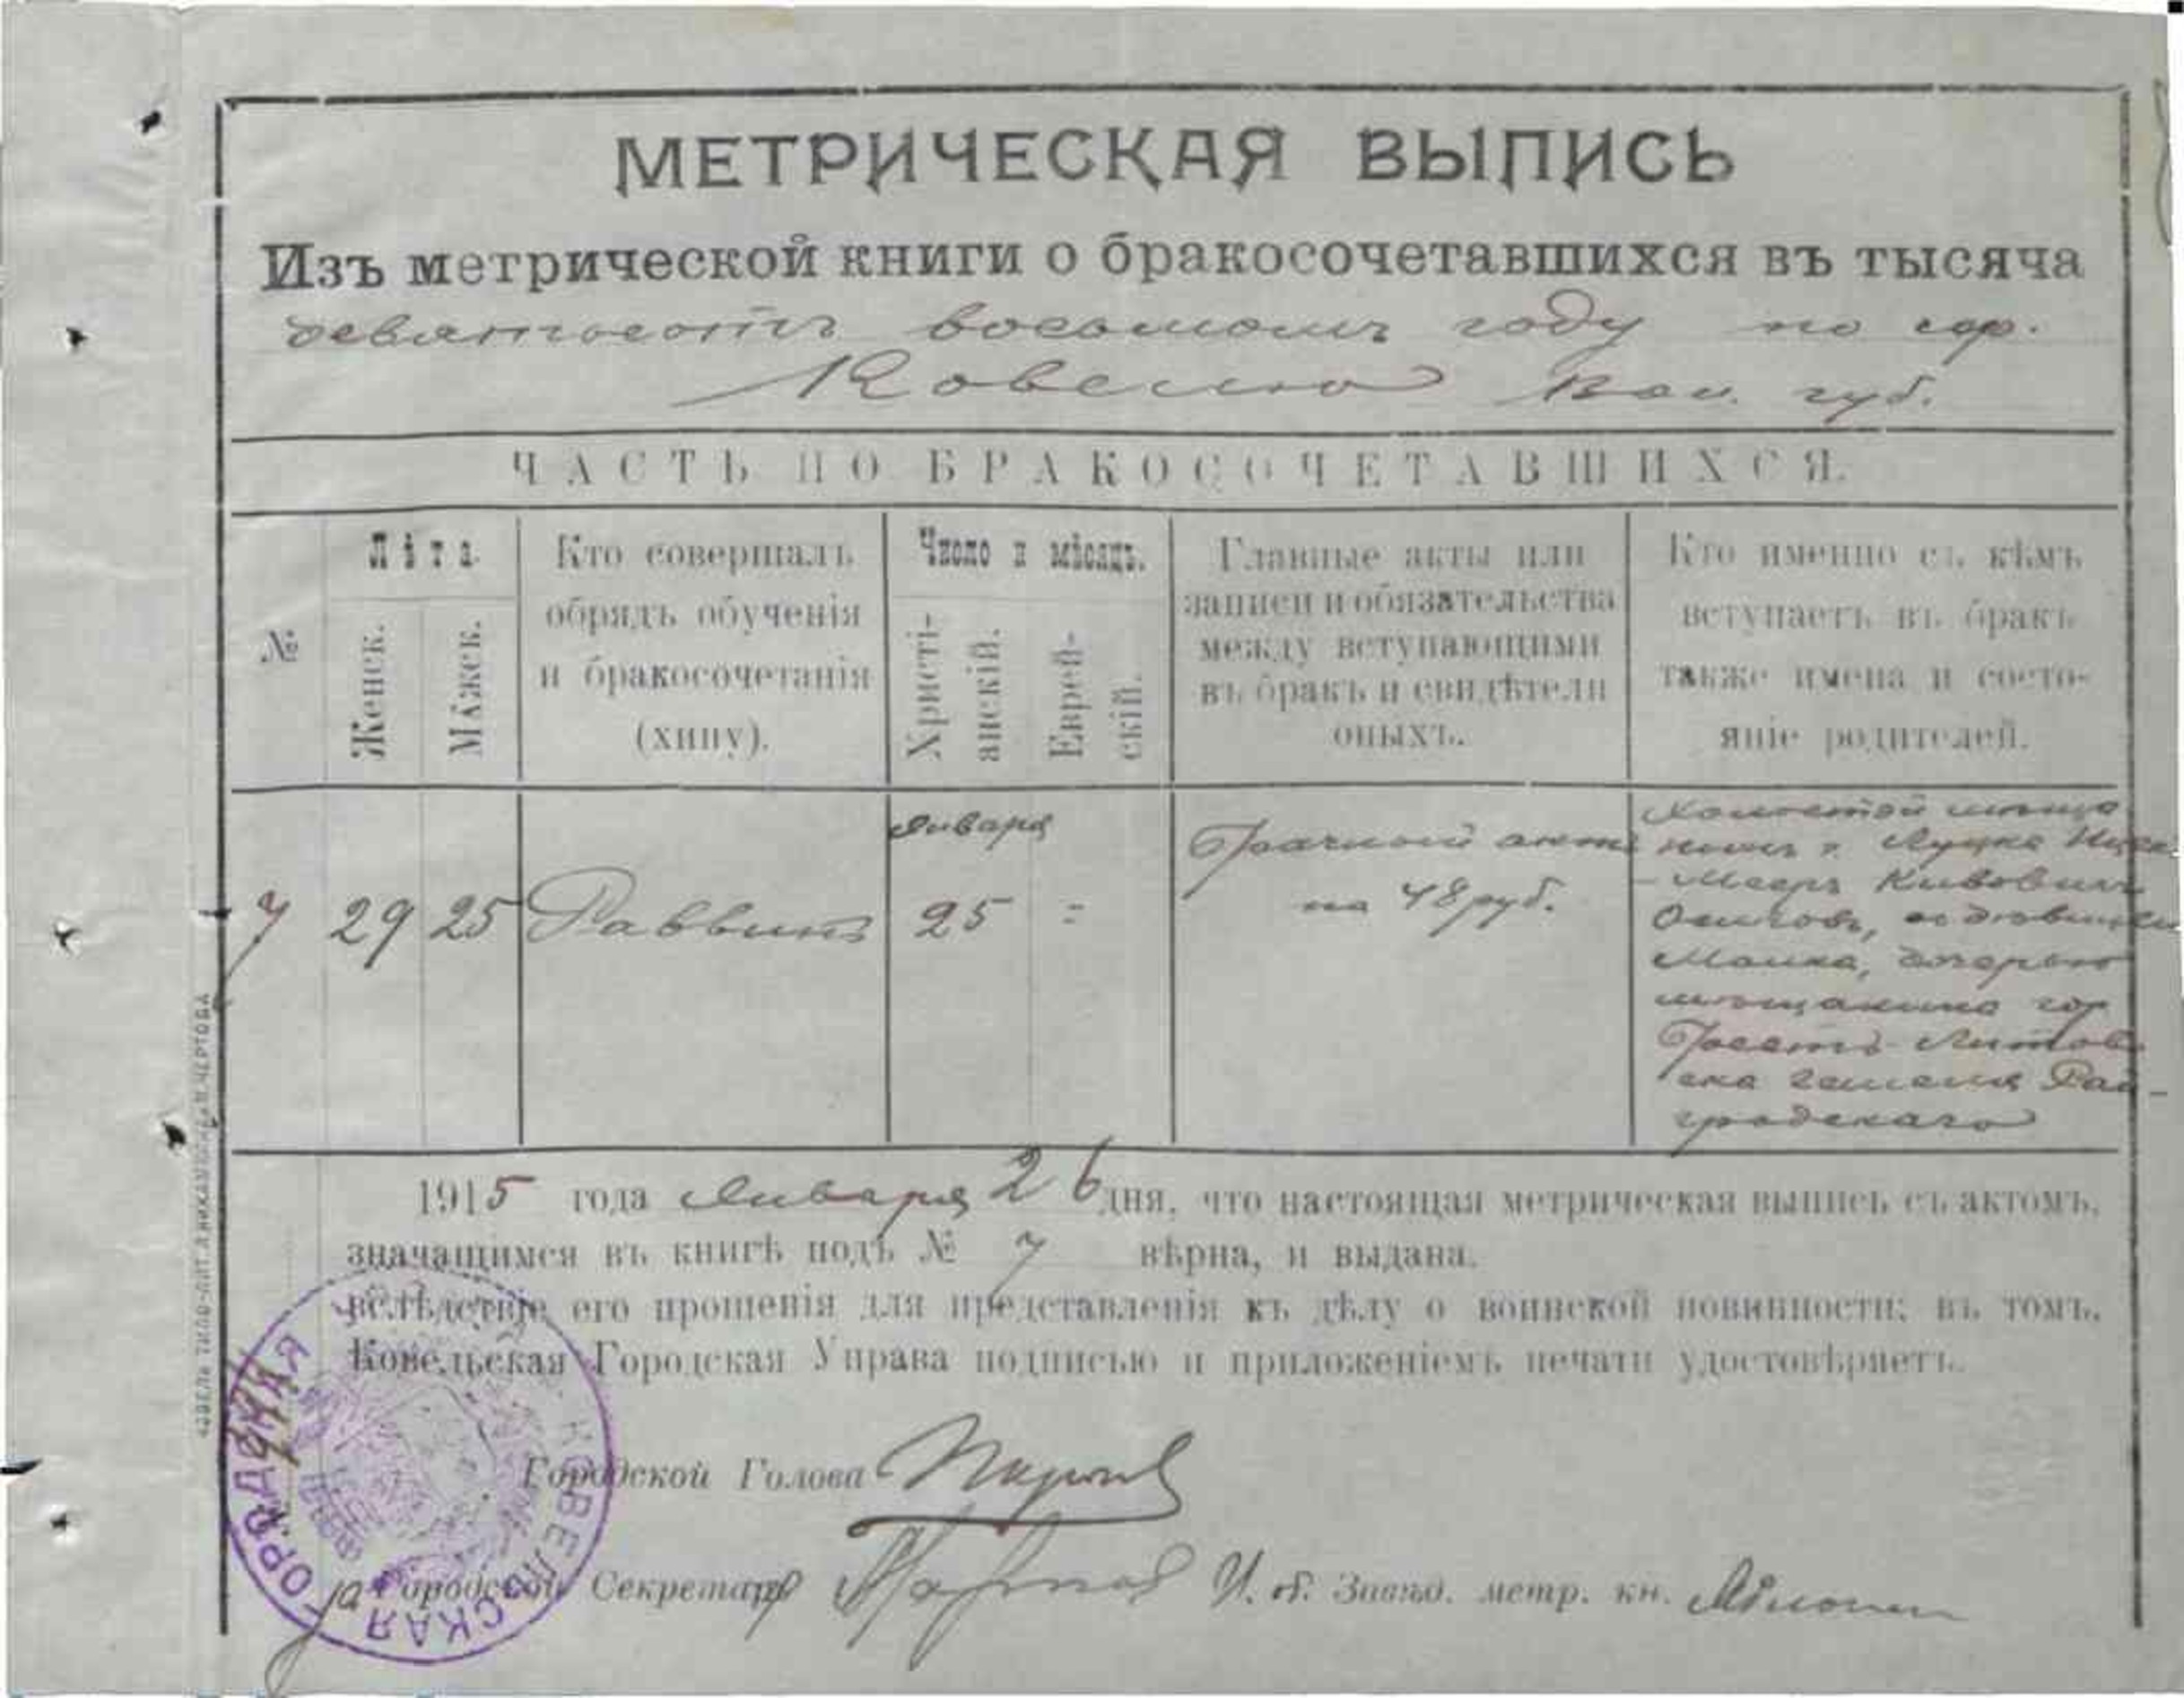 МЕТРИЧЕСКАЯ ВЫПИСЬ
Изъ метрической книги о бракосочетавшихся въ тысяча
девятьсотъ восьмомъ году по гор.
Ковелю Вол. губ.
ЧАСТЬ ПО БРАКОСОЧЕТАВШИХСЯ.
№
Лѣта.
Женск.
Мужск.
Кто совершалъ
обрядъ обученія
и бракосочетанія
(хипу).
Число и мѣсяцъ.
Христі-
анскій.
Еврей-
скій.
Главные акты или
записи и обязательства
между вступающими
въ бракъ и свидѣтели
оныхъ.
Кто именно съ кѣмъ
вступаетъ въ бракъ
также имена и состо-
яніе родителей.
7
29
25
Раввинъ
Января
25
=
Брачный актъ
на 48 руб.
Холостой мѣща
нинъ г. Луцка Ицко
-Мееръ Кивовичъ
съ дѣвицею
Малка, дочерью
мѣщанина гор
Брестъ-Литов
ска Рай-
гродскаго
1915 года Января 26 дня, что настоящая метрическая выпись съ актомъ,
значащимся въ книгѣ подъ № 7 вѣрна, и выдана.
вслѣдствіе его прошенія для представленія къ дѣлу о воинской повинности; въ томъ,
Ковельская Городская Управа подписью и приложеніемъ печати удостовѣряетъ.
Городской Голова
за Городской Секретарь
И. об. Завѣд. метр. кн.
КОВЕЛЬСКАЯ ГОРОДСКАЯ